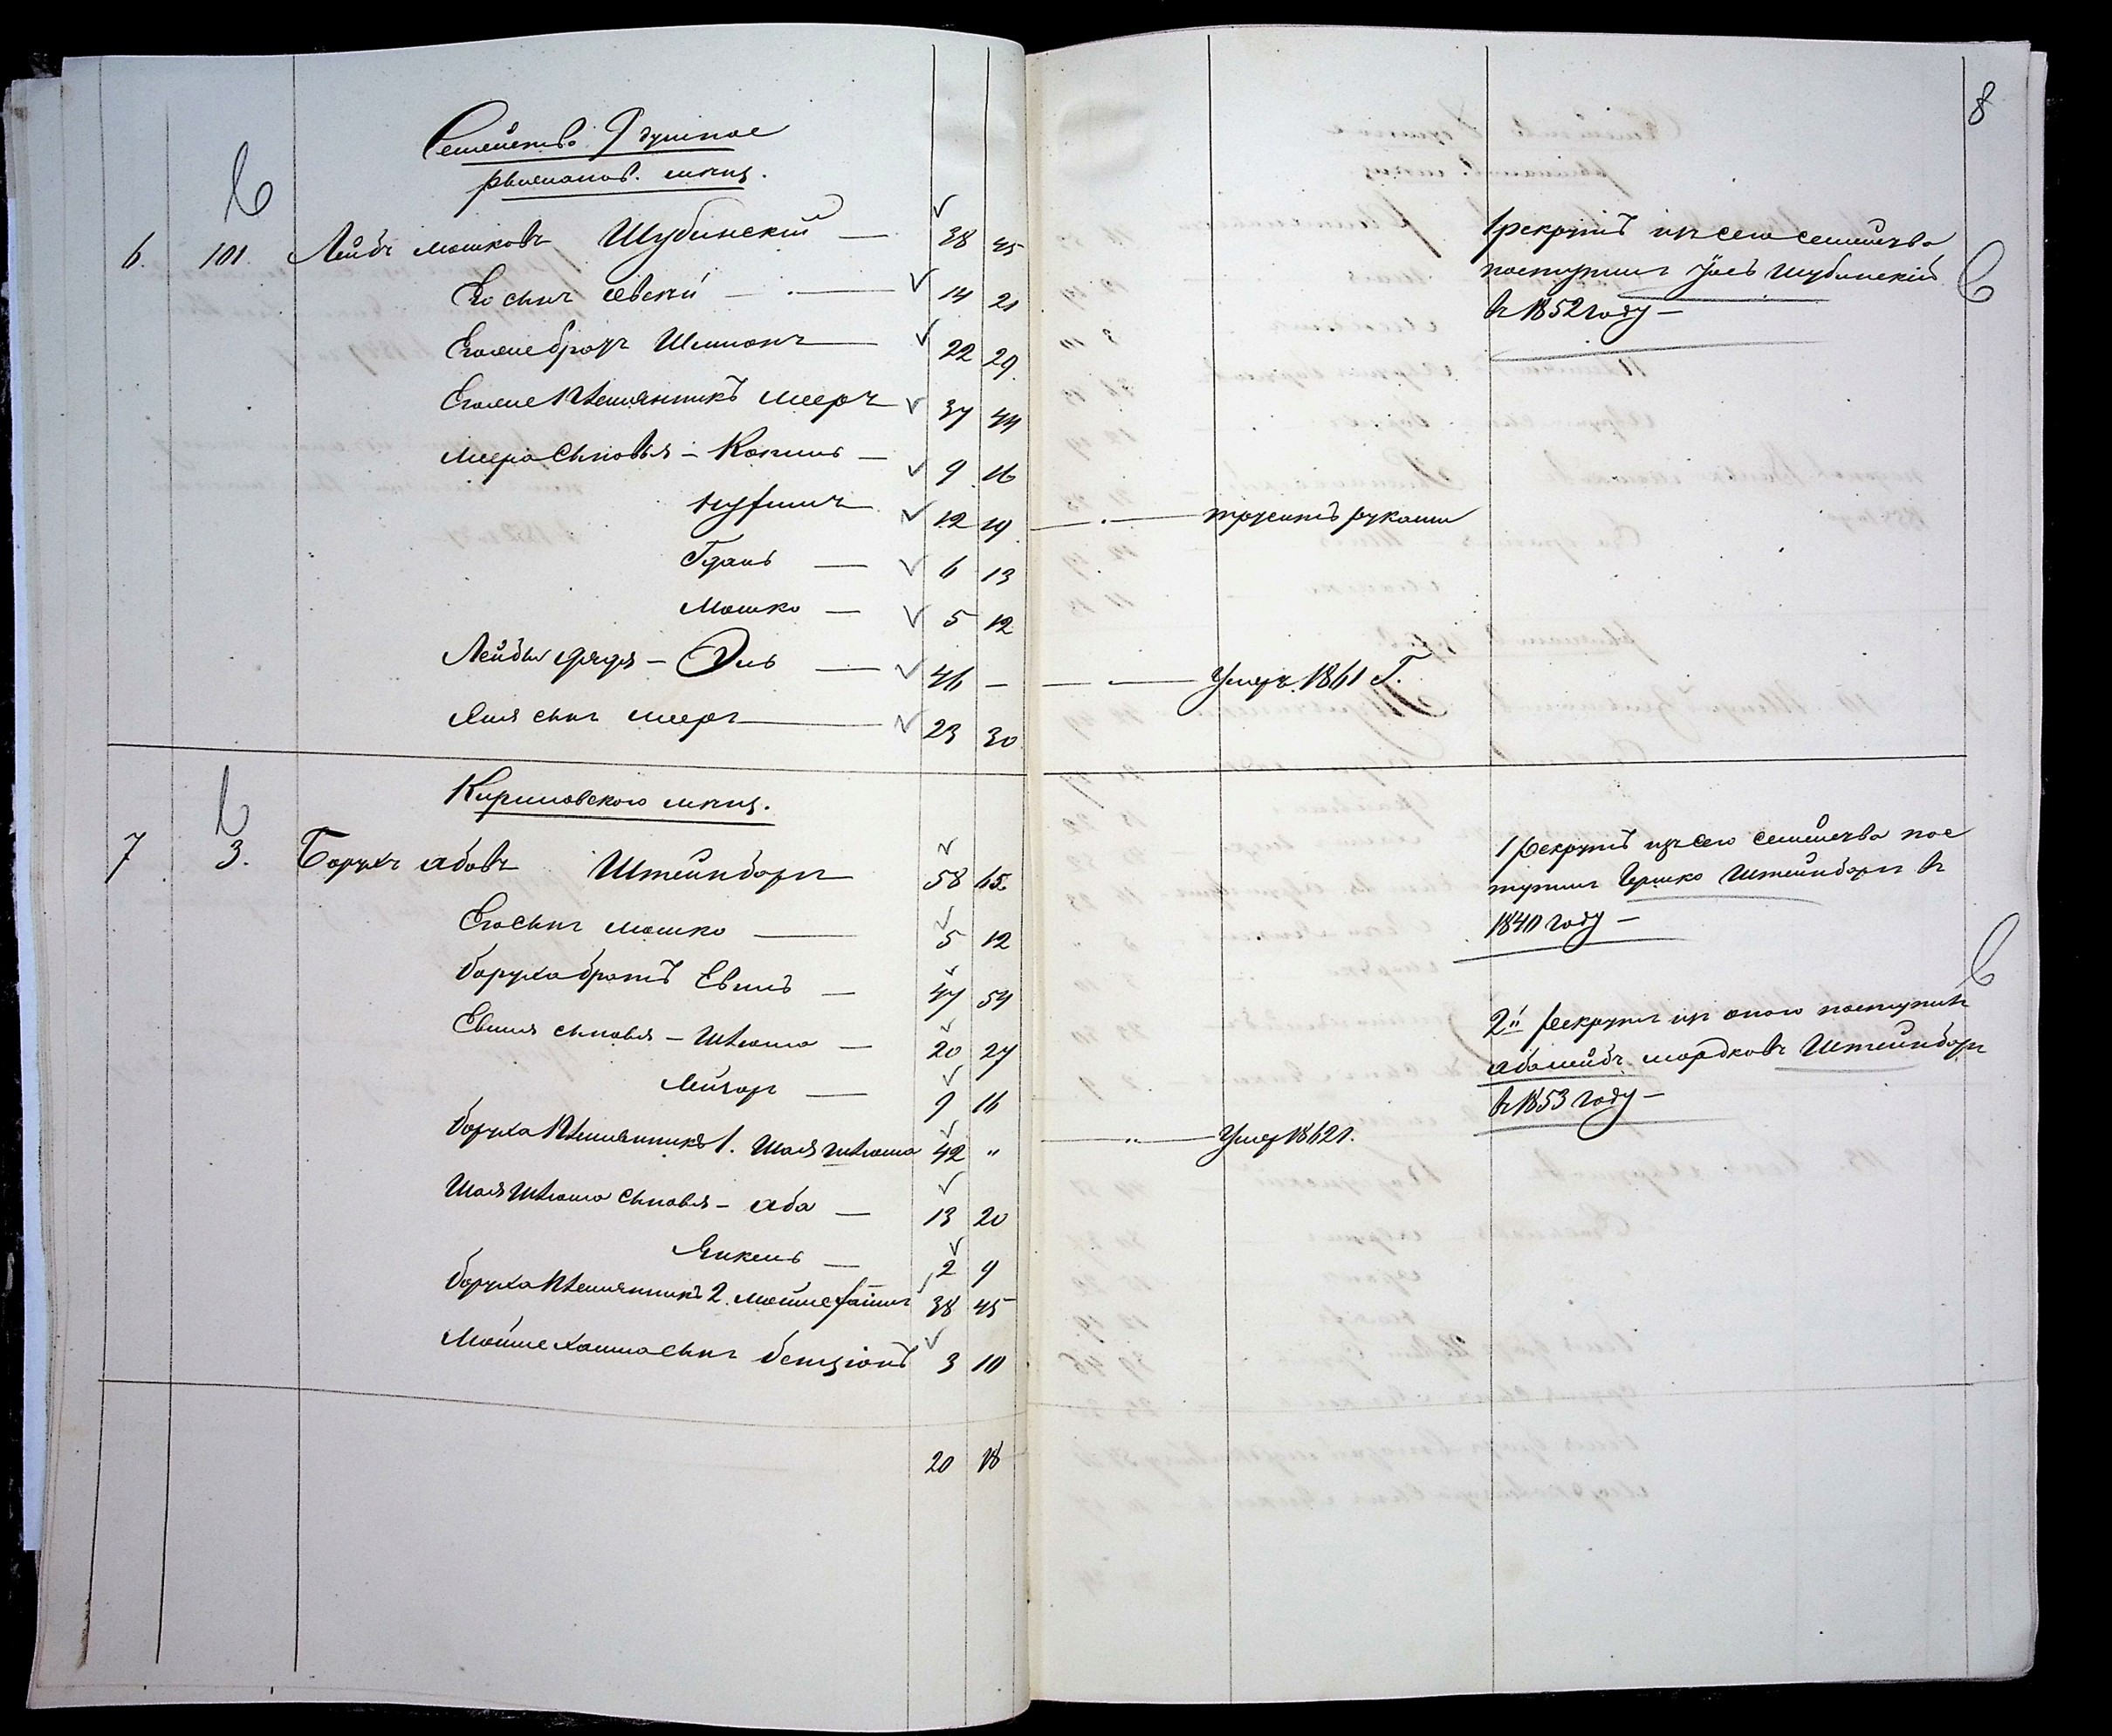 8
Семейство 9 душное
мѣщ.
6. 101. Лейбъ Мошковъ Шубинскій — 38 45
Его сынъ Евсей — 14 21
Еголже братъ Шлиомъ — 22 29
Еголже племянникъ Мееръ 37 44
Меера сыновья — Копель — 9 16
12 19 — трусить руками
Гдаль — 6 13
Мошко — 5 12
Лейбы дядя — Эль — 46 — — Умеръ 1861 Г.
Эля сынъ Мееръ — 23 30
1 рекрутъ изъ сего семейства
поступилъ Іось Шубинскій
въ 1852 году —
Кириловского мѣщ.
7 3. Борухъ Абовъ Штейнбаргъ 58 65
Его сынъ Мошко — 5 12
Боруха братъ Евель — 47 54
Евеля сыновья — Шлёма — 20 27
Лейзаръ — 9 16
Боруха племянникъ 1. Шая Шлёма 42 " — " — Умер 1862 г.
Шая Шлёма сыновья — Аба — 13 20
Янкель — 2 9
Боруха племянникъ 2. Мойше Хаимъ 38 45
Мойше Хаима сынъ Бенціонъ 3 10
1 рекрутъ изъ сего семейства пос
тупилъ Гершко Штейнбаргъ въ
1840 году —
2й рекрутъ изъ оного поступилъ
Абалейбъ Мордковъ Штейнбаргъ
въ 1853 году —
20 18